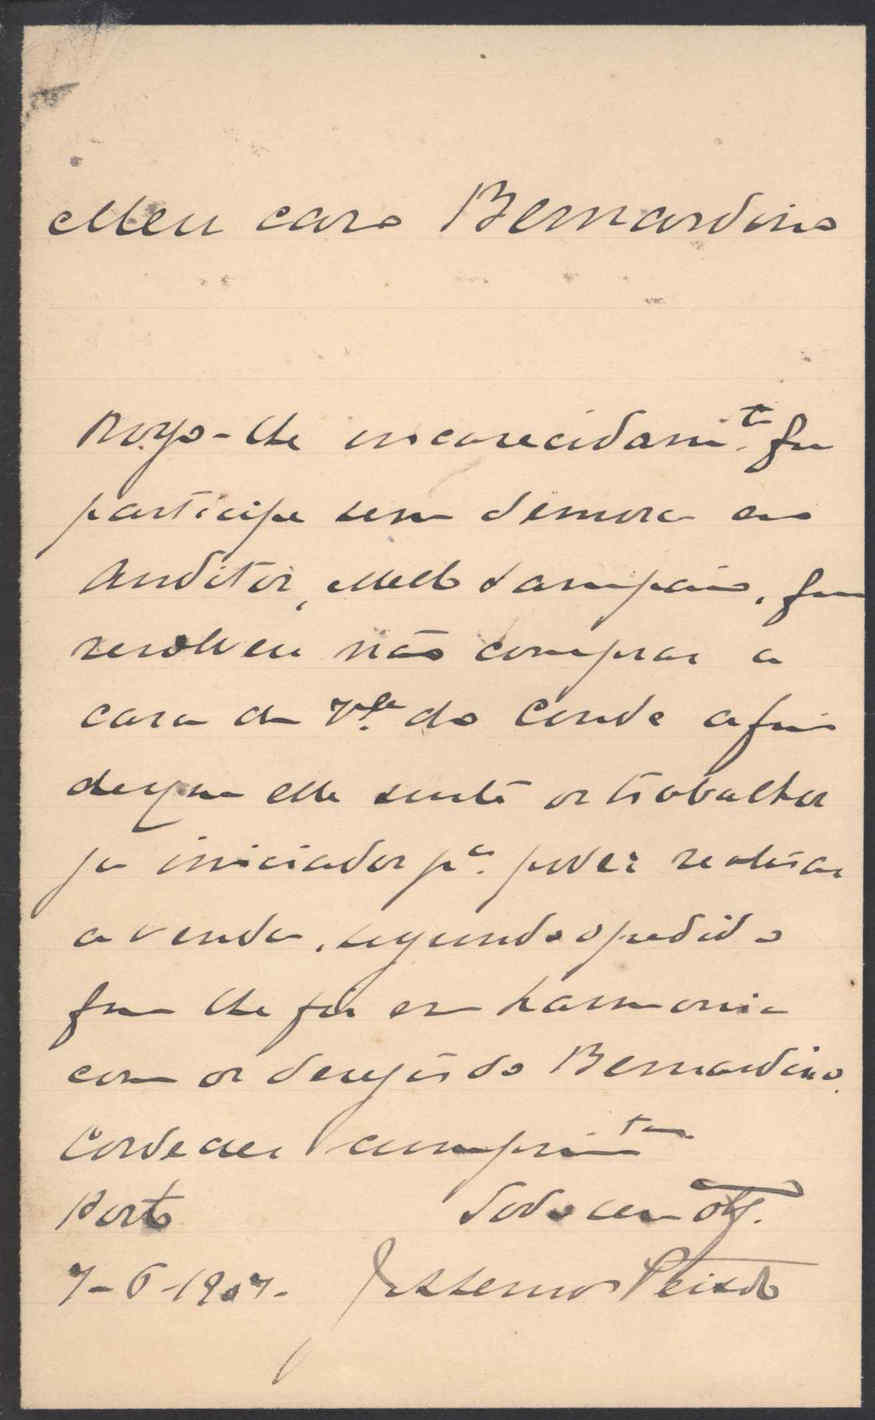 Meu caro Bernardino
Rogo-lhe encarecidam.te que
participe sem demora ao
Auditor, Mello Sampaio, que
resolveu não comprar a
casa de V.la do Conde a fim
de que elle os trabalhos
já iniciados p.a poder realisar
a venda, segundo o pedido
que lhe fiz em harmonia
com os desejos do Bernardino.
Cordeaes cumprim.tos
Porto
7-6-1907. Peixoto